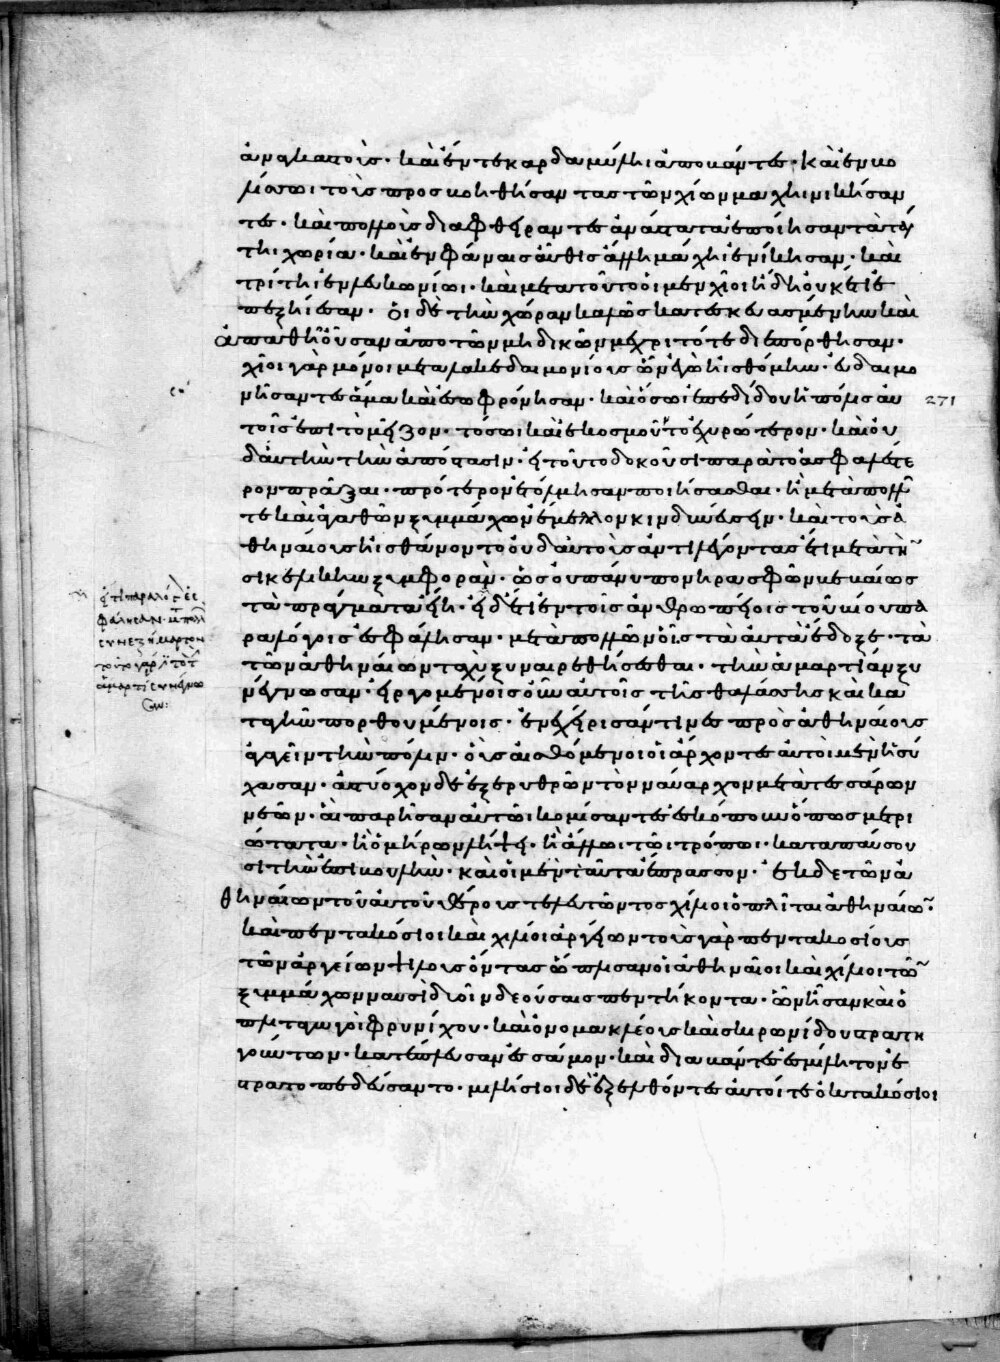 ἀναγκαστοῖς· καὶ ἔν τε καρδαμύληι ἀποβάντες· καὶ ἐν βο
λίσσωι τοὺς προσβοηθήσαντας τῶν χίων μάχηι νικήσαν
τες· καὶ πολλοὺς διαφθείραντες ἀνάστατα ἐποίησαν τὰ ταύ
τηι χωρία· καὶ ἐν φάναις αὖθις ἄλληι μάχηι ἐνίκησαν· καὶ
τρίτηι ἐν λευκωνίωι· καὶ μετὰ τοῦτο οἱ μὲν χῖοι ἤδη οὐκέτι ἐ
πεξήιεσαν· οἱ δὲ τὴν χώραν καλῶς κατεσκευασμένην καὶ
ἀπαθῆ οὖσαν ἀπὸ τῶν μηδικῶν μέχρι τότε διεπόρθησαν·
χῖοι γὰρ μόνοι μετὰ λακεδαιμονίους ὧν ἐγὼ ἠισθόμην· εὐδαιμο
νήσαντες ἅμα καὶ ἐσωφρόνησαν· καὶ ὅσωι ἐπεδίδου ἡ πόλις αὐ
τοῖς ἐπὶ τὸ μεῖζον· τόσωι καὶ ἐκοσμοῦντο ἐχυρώτερον· καὶ οὐ
δ' αὐτὴν τὴν ἀπόστασιν· εἰ τοῦτο δοκοῦσι παρὰ τὸ ἀσφαλέστε
ρον πρᾶξαι· πρότερον ἐτόλμησαν ποιήσασθαι· ἢ μετὰ πολλῶν
τε καὶ ἀγαθῶν ξυμμάχων ἔμελλον κινδυνεύσειν· καὶ τοὺς ἀ
θηναίους ἠισθάνοντο οὐδ' αὐτοὺς ἀντιλέγοντας ἔτι μετὰ τὴν
σικελικὴν ξυμφορὰν· ὡς οὐ πάνυ πόνηρα σφῶν βεβαίως
τὰ πράγματα εἴη· εἰ δέ τι ἐν τοῖς ἀνθρωπείοις τοῦ βίου πα
ραλόγοις ἐσφάλησαν· μετὰ πολλῶν οἷς τὰ αὐτὰ ἔδοξε· τὰ
τῶν ἀθηναίων ταχὺ ξυναιρεθήσεσθαι· τὴν ἁμαρτίαν ξυ
νέγνωσαν· εἰργομένοις οὖν αὐτοῖς τῆς θαλάσσης καὶ κα
τὰ γῆν πορθουμένοις· ἐνεχείρισάν τινες πρὸς ἀθηναίους
ἀγαγεῖν τὴν πόλιν· οὓς αἰσθόμενοι οἱ ἄρχοντες αὐτοὶ μὲν ἡσύ
χασαν· ἀστύοχον δὲ ἐξ ἐρυθρῶν τὸν ναύαρχον μετὰ τεσσάρων
νεῶν· αἳ παρῆσαν αὐτῶι κομίσαντες ἐσκόπουν ὅπως μετρι
ώτατα· ἢ ὁμήρων λήψει· ἢ ἄλλωι τῶι τρόπωι· καταπαύσου
σι τὴν ἐπιβουλὴν· καὶ οἱ μὲν ταῦτα ἔπρασσον· ἐκ δὲ τῶν ἀ
θηναίων τοῦ αὐτοῦ θέρους τελευτῶντος χίλιοι ὁπλῖται ἀθηναίων·
καὶ πεντακόσιοι καὶ χίλιοι ἀργείων τοὺς γὰρ πεντακοσίους
τῶν ἀργείων ψιλοὺς ὄντας ὥπλισαν οἱ ἀθηναῖοι καὶ χίλιοι τῶν
ξυμμάχων ναυσὶ δυοῖν δεούσαις πεντήκοντα· ὧν ἦσαν καὶ ὁ
πλιταγωγοὶ φρυνίχου· καὶ ὀνομακλέους καὶ σκιρωνίδου στρατη
γούντων· κατέπλευσαν ἐς σάμον· καὶ διαβάντες ἐς μίλητον ἐ
στρατοπεδεύσαντο· μιλήσιοι δὲ ἐξελθόντες αὐτοί τε ὀκτακόσιοι
271